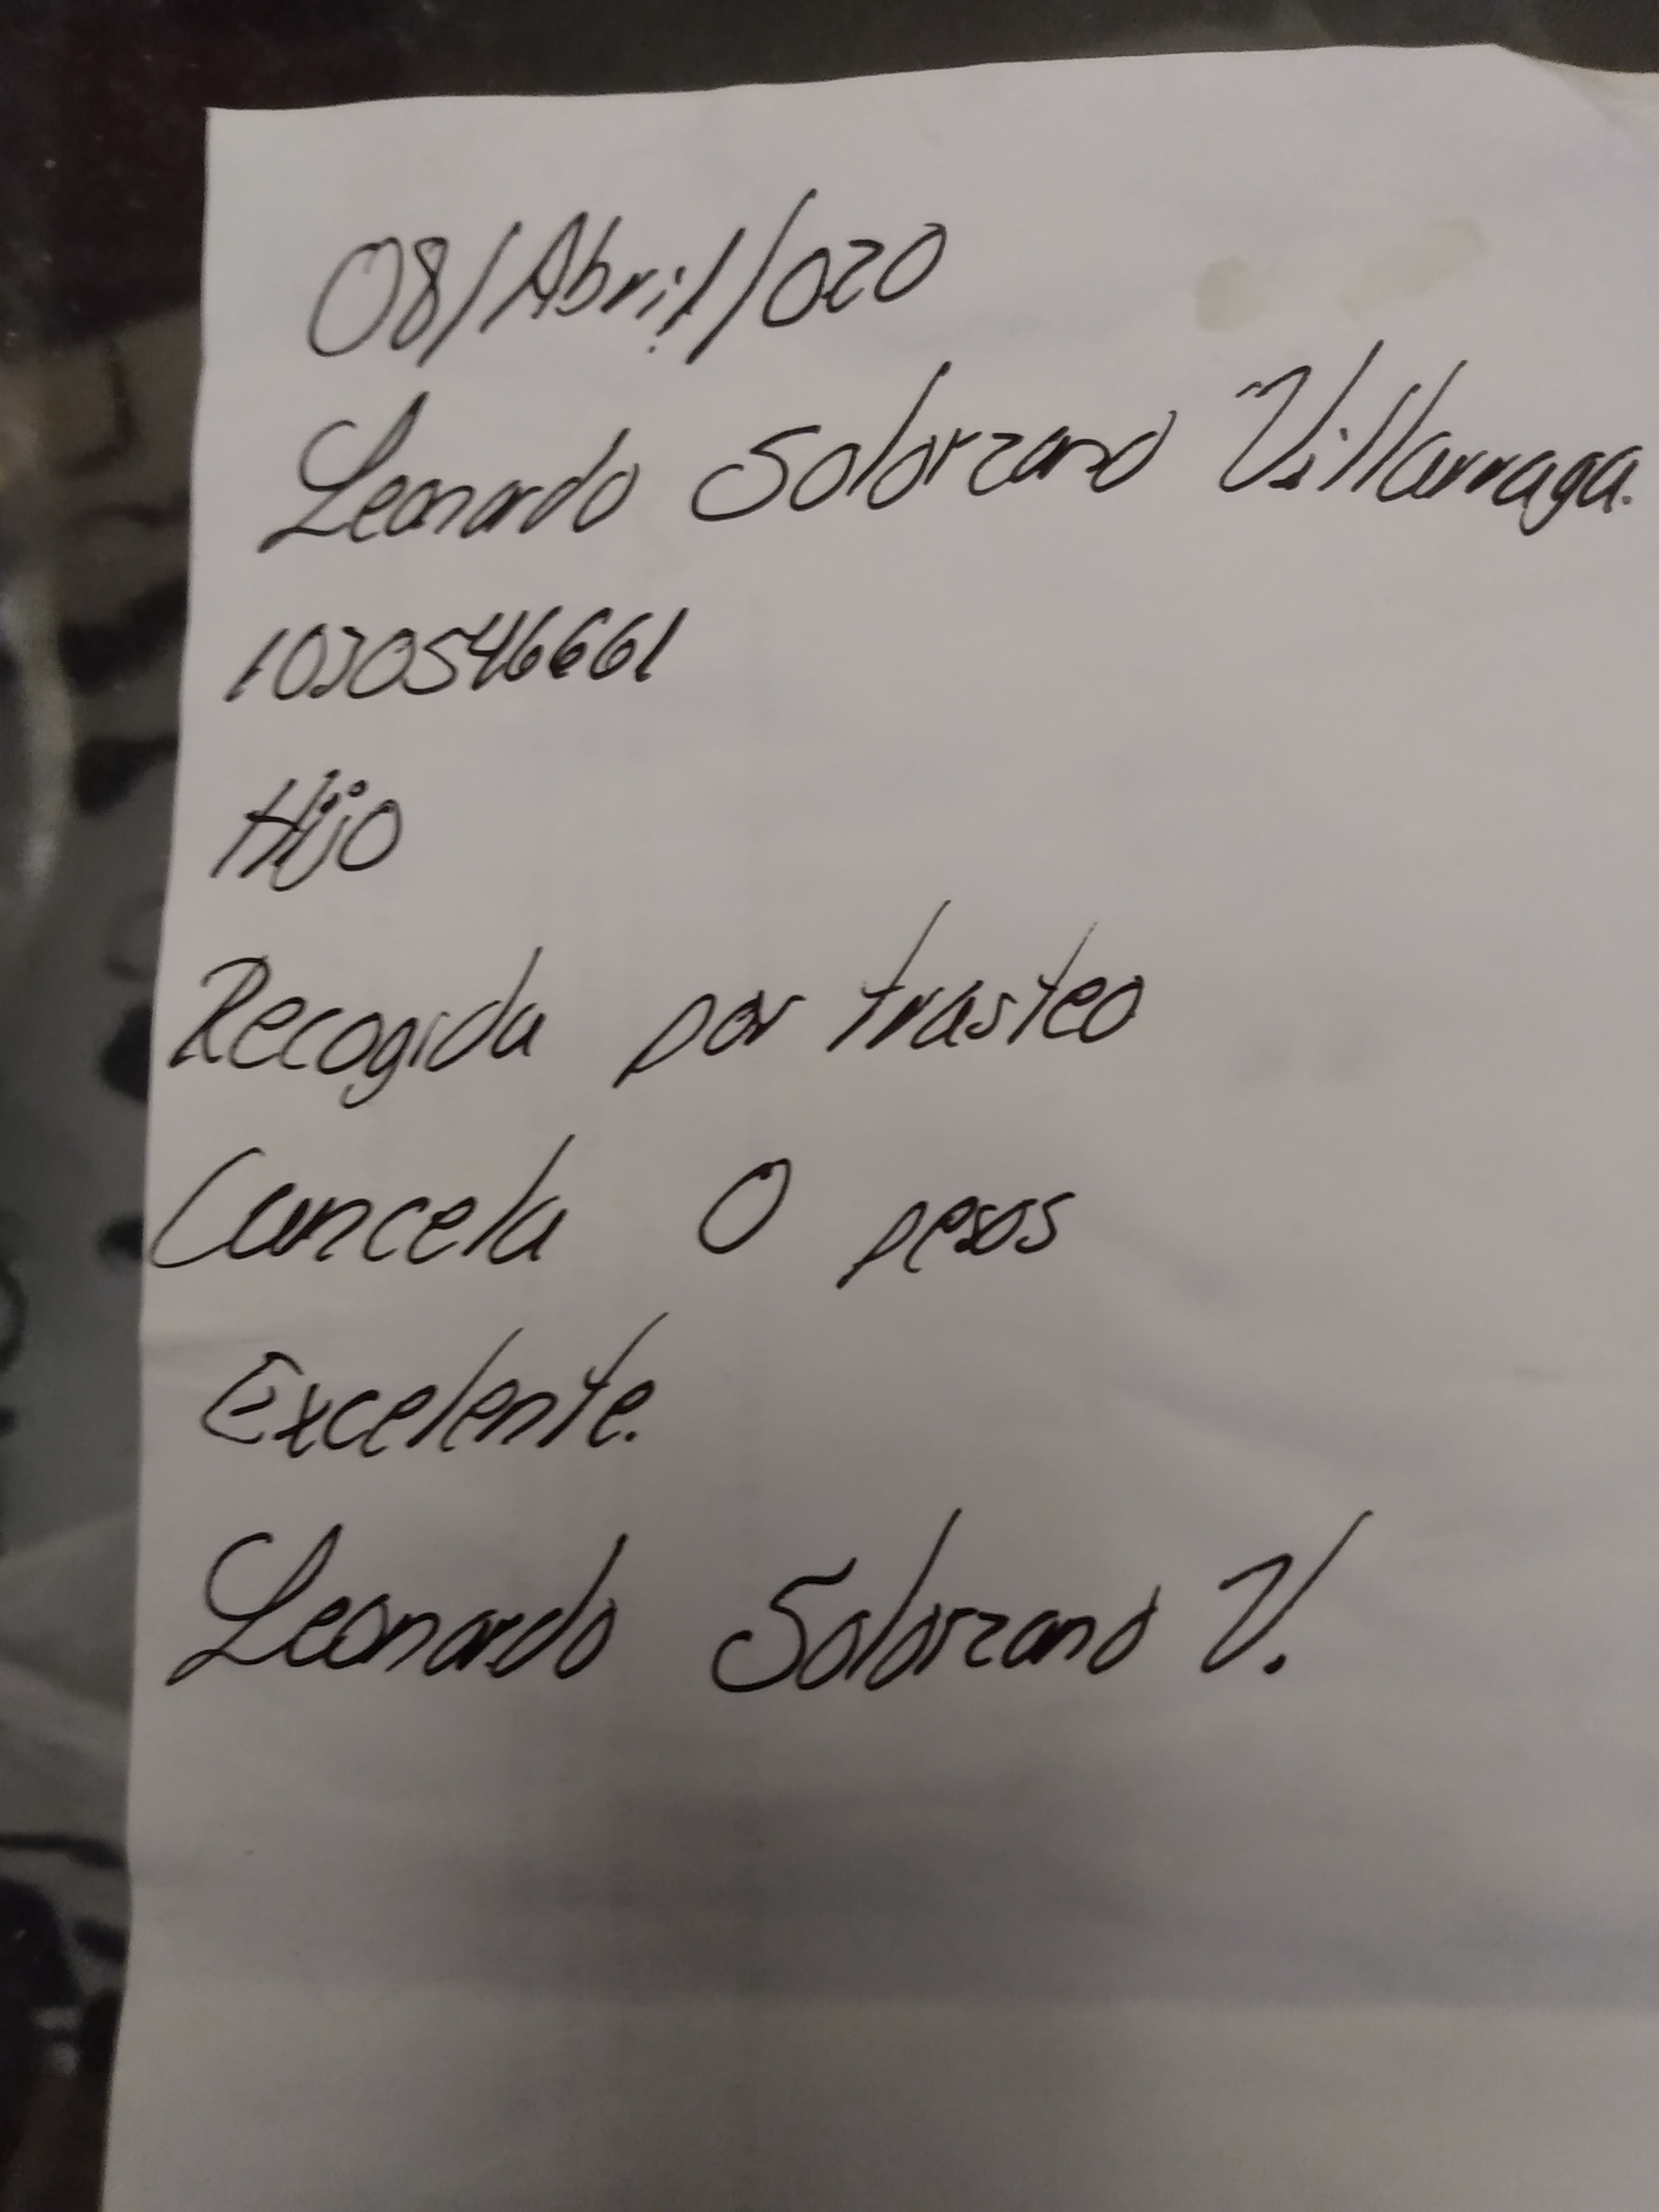 08/Abril/020
Leonardo Solorzano Villarraga.
1030546661
Hijo
Recogida por trasteo
Cancela 0 pesos
Excelente.
Leonardo Solorzano V.